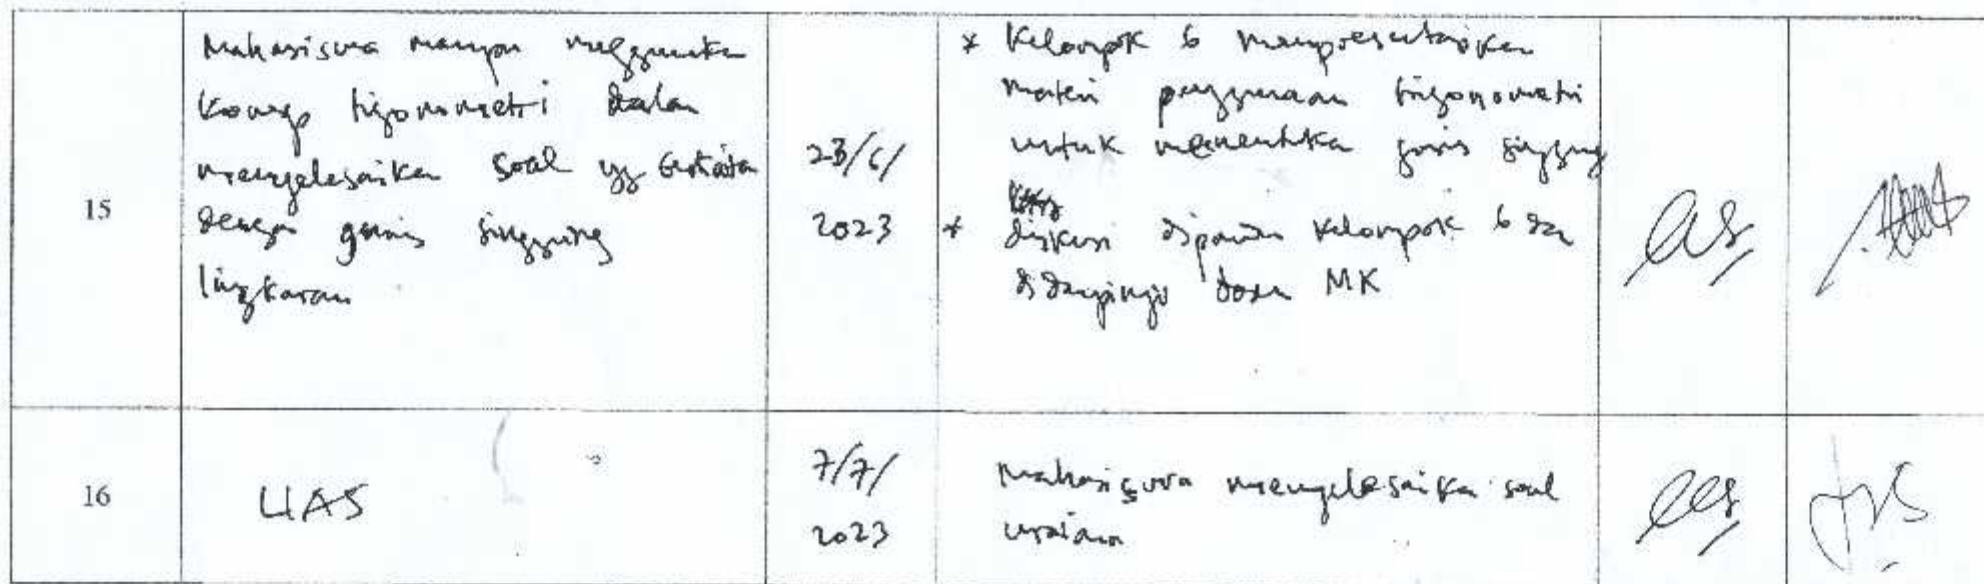 15
Mahasiswa mampu menggunakan
konsep trigonometri dalam
menyelesaikan soal yg berkaitan
dengan garis singgung
lingkaran
23/6/
2023
* Kelompok 6 mempresentasikan
materi penggunaan trigonometri
untuk menentukan garis singgung
* diskusi dipandu kelompok 6 dan
didampingi dosen MK
16
UAS
7/7/
2023
Mahasiswa menyelesaikan soal
uraian